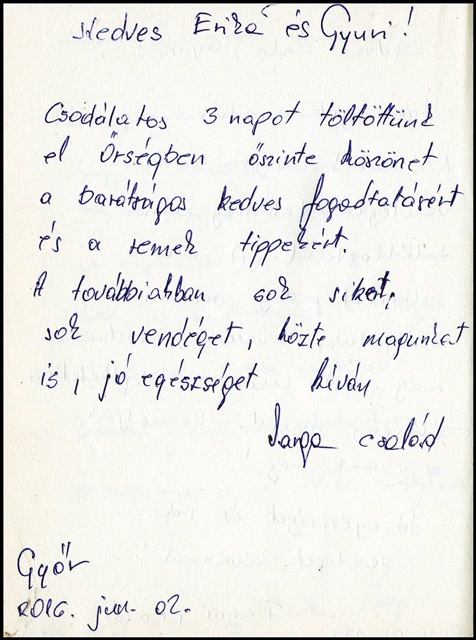 Kedves Erika és Gyuri!
Csodálatos 3 napot töltöttünk
el Őrségben őszinte köszönet
a barátságos kedves fogadtatásért
és a remek tippekért.
A továbbiakban sok sikert,
sok vendéget, közte magunkat
is, jó egészséget kíván
Varga család
Győr
2016. jun. 02.